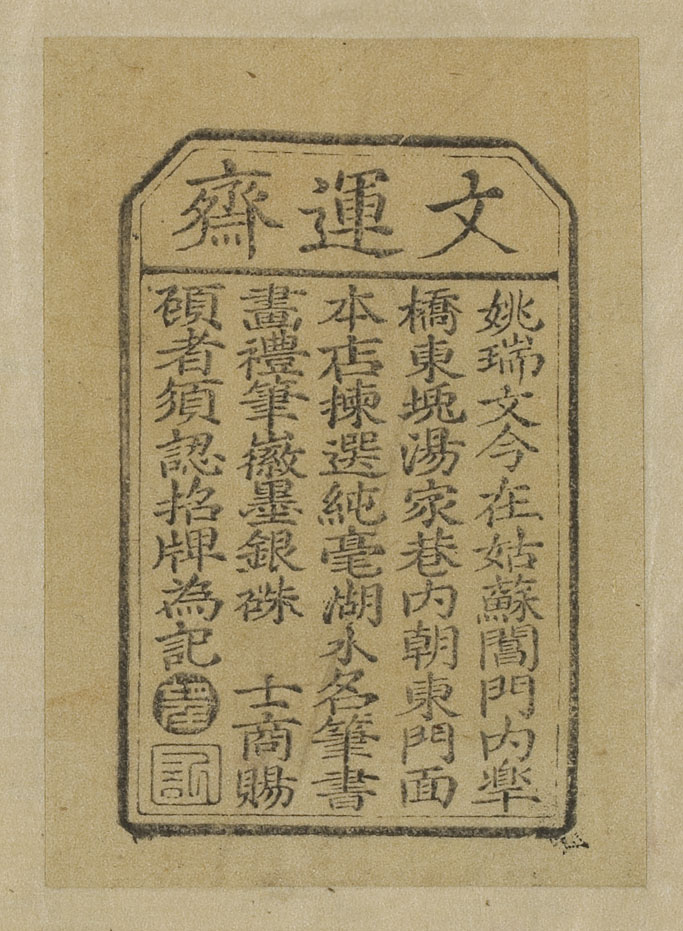 文運齋
姚瑞文今在姑蘇閶門內臯
橋東堍湯家巷內朝東門面
本店揀選純毫湖水名筆書
畫禮筆徽墨銀硃　士商賜
碩者須認招牌為記